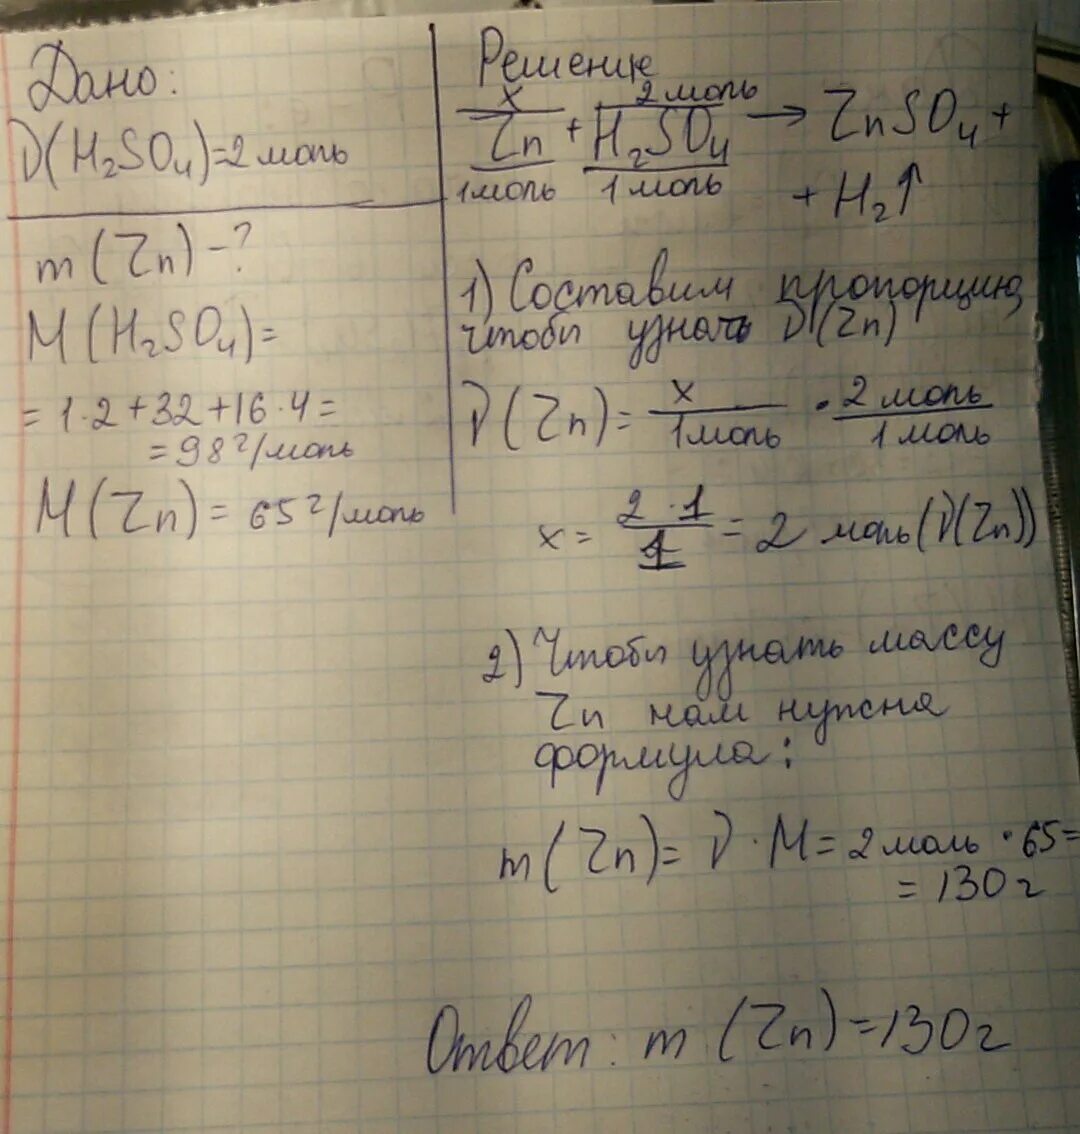 Дано:
ν(H₂SO₄)=2 моль
m(Zn)-?
M(H₂SO₄)=
=1·2+32+16·4=
=98 г/моль
M(Zn)=65 г/моль
Решение
x 2 моль
Zn + H₂SO₄ → ZnSO₄ +
1 моль 1 моль
+ H₂↑
1) Составим пропорцию,
чтобы узнать ν(Zn)
ν(Zn)= x/1 моль · 2 моль/1 моль
x = 2·1/1 = 2 моль (ν(Zn))
2) Чтобы узнать массу
Zn нам нужна
формула:
m(Zn)= ν·M = 2 моль · 65=
= 130 г
Ответ: m(Zn)=130 г